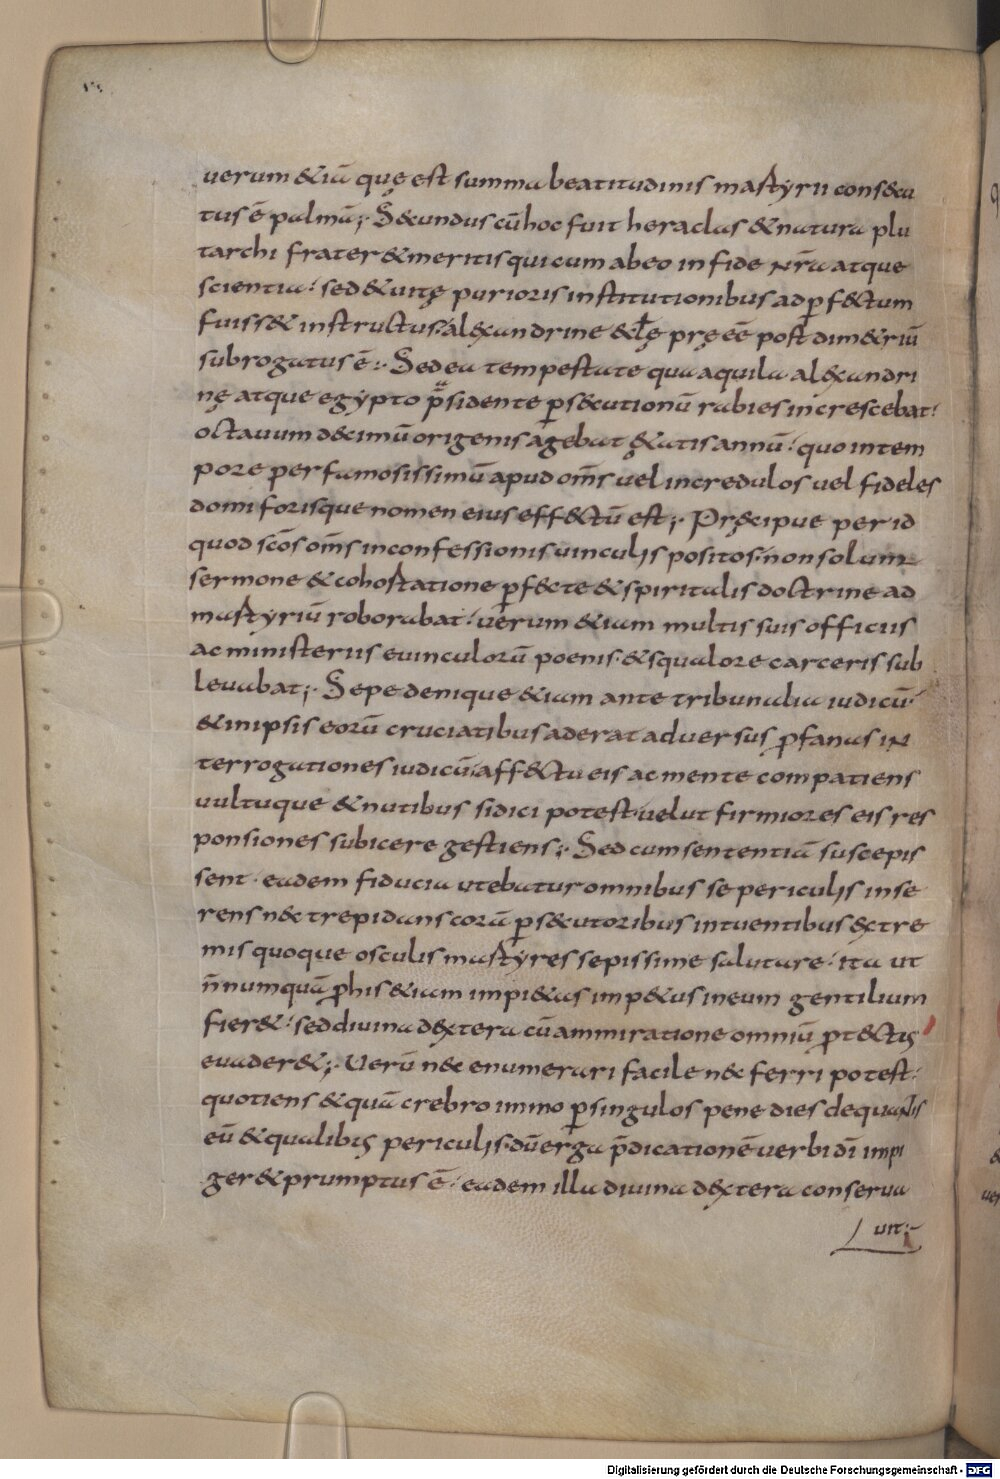 uerum &iā quę est summa beatitudinis martyrii consecu
tus ē palmā;· Secundus cū hoc fuit heraclas & natura plu
tarchi frater & meritis qui cum ab eo in fide nr̄a atque
scientia· sed & uitę purioris institutionibus ad ꝑfectum
fuiss& instructus· alexandrine &łę pręeē post dim&riū
subrogatus ē;· Sed ea tempestate qua aquila alexandri
nę atque egypto p̄sidente ꝑsecutionū rabies increscebat·
octauum decimū origenis agebat &atis annū· quo in tem
pore per famosissimū apud om̄s uel incredulos uel fideles
domi forisque nomen eius effectū est;· Pręcipue per id
quod sc̄os om̄s in confessionis uinculis positos· non solum
sermone & cohortatione ꝑfecte & spiritalis doctrine ad
martyriū roborabat· uerum &iam multis suis officiis
ac ministeriis e uinculorū poenis & squalore carceris sub
leuabat;· Sepe denique &iam ante tribunalia iudicū·
& in ipsis eorū cruciatibus aderat aduersus ꝓfanas in
terrogationes iudicū· affectu eis ac mente compatiens
uultuque & nutibus si dici potest· uelut firmiores eis res
ponsiones subicere gestiens;· Sed cum sententiā suscepis
sent· eadem fiducia utebatur omnibus se periculis inse
rens nec trepidans corā ꝑsecutoribus intuentibus extre
mis quoque osculis martyres sepissime salutare· ita ut
n̄numquā ꝓ his &iam impi&as imp&us in eum gentilium
fier&· sed diuina dextera cū ammiratione omniū ꝓtectus
euader&;· Uerū nec enumerari facile nec ferri potest·
quotiens & quā crebro immo ꝑ singulos pene dies de qualis
eū & qualibus periculis· dū erga p̄dicationē uerbi dī impi
ger & prumptus ē· eadem illa diuina dextera conserua
uit;·
Digitalisierung gefördert durch die Deutsche Forschungsgemeinschaft - DFG